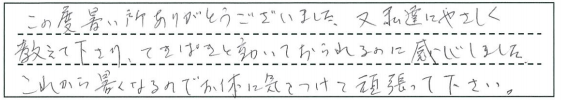 この度暑い所ありがとうございました。又私達にやさしく
教えて下さり、てきぱきと動いておられるのに感じしました。
これから暑くなるのでお体に気をつけて頑張って下さい。